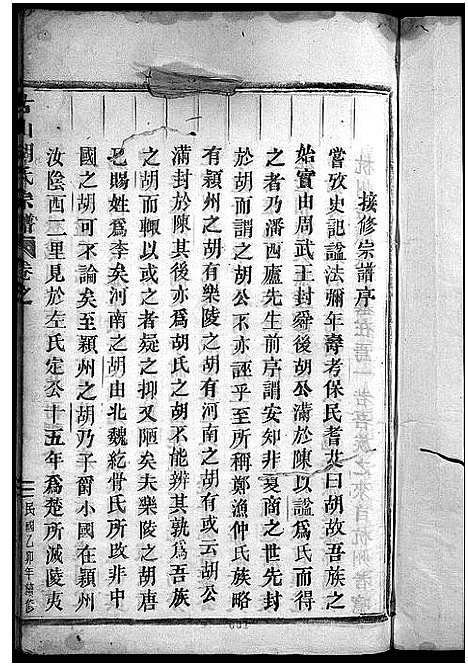 接修宗譜序
嘗攷史記諡法彌年壽考保民耆艾曰胡故吾族之
始實由周武王封舜後胡公滿於陳以諡爲氏
之者乃潘西廬先生前序謂安知非夏商之世先封
於胡而謂之胡公不亦誣乎至所稱鄭漁仲氏族略
有潁州之胡有樂陵之胡有河南之胡有或云胡公
滿封於陳其後亦爲胡氏之胡不能辨其孰爲吾族
之胡而輒以或之者疑之抑又陋矣夫樂陵之胡唐
已賜姓爲李矣河南之胡由北魏紇骨氏所改非中
國之胡可不論矣至潁州之胡乃子爵小國在潁州
汝陰西二里見於左氏定公十五年爲楚所滅陵夷
氏宗譜 卷之
民國乙卯年續修